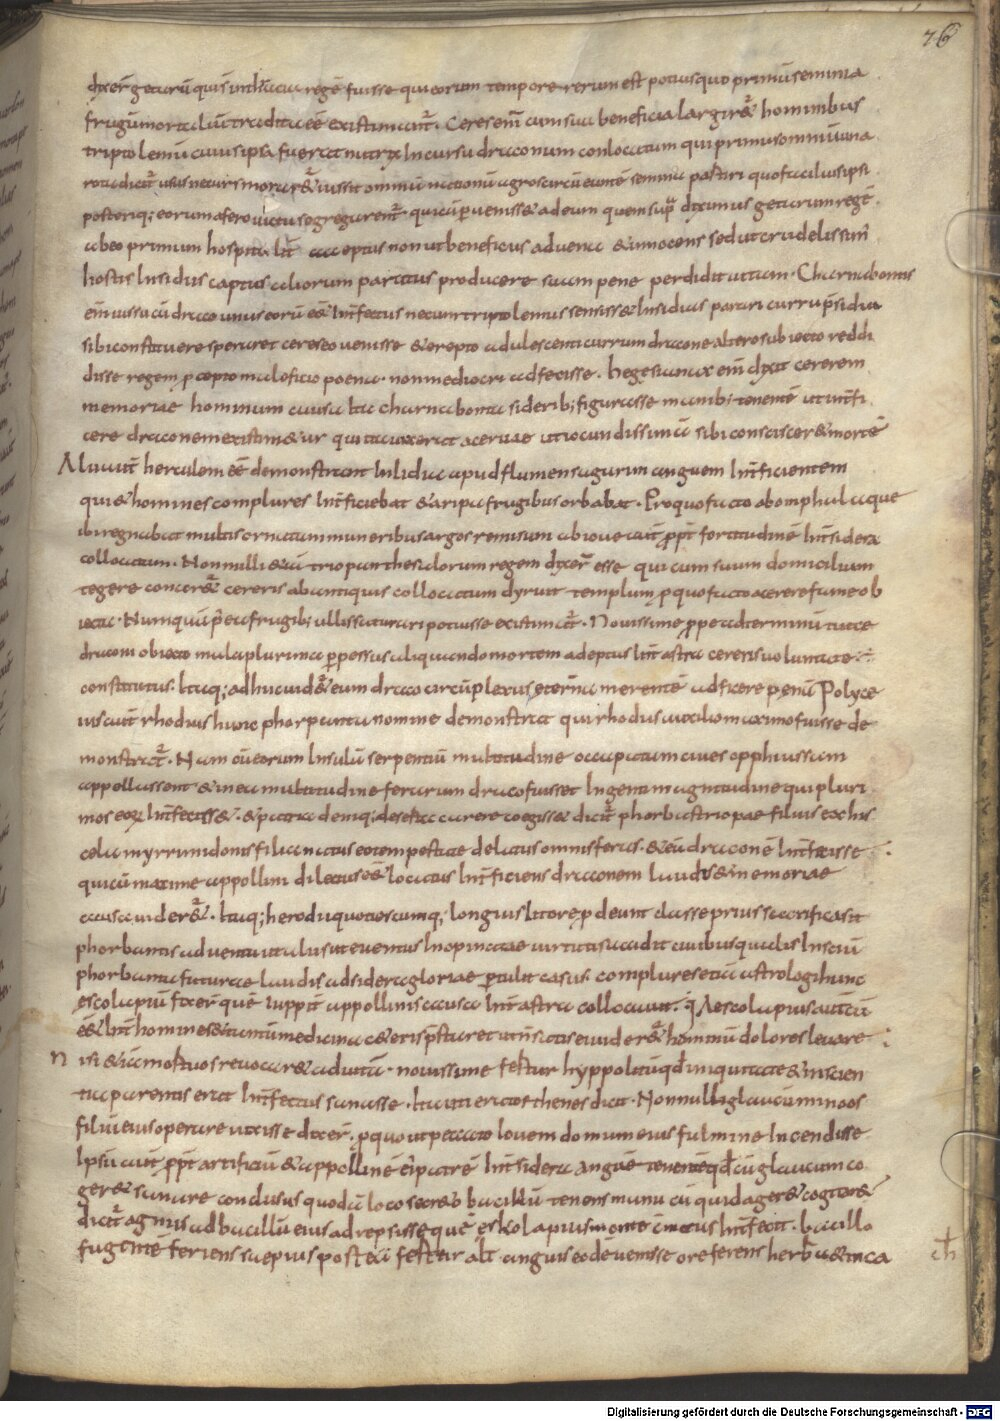 76
dixer̄ getarū quisinthracia regē fuisse quieorum tempore rerum est potius quo primū semina
frugū mortaliū tradita eē existimant̄. Cererem̄ cum sua beneficia largir& hominibus
triptolemū cuius ipsa fuerat nutrix In curru draconum conlocatum qui primus omniū una
rota dicit̄ usus ne cursu morar& iussit omniū nationū agros circūeuntē semina partiri quo facilius ipsi
posteriq; eorum a fero uictu segregarent̄. qui cū p̱uenisset ad eum quem supra diximus getarum regē.
ab eo primum hospitalit̄ acceptus non ut beneficus aduena & innocens sed ut crudelissim̄
hostis Insidiis captus aliorum paratus producere suam pene perdidit uitam. Charnabontis
em̄ iussu cū draco unus eorū eēt Int̄fectus ne cum triptolemus sensiss& Insidias parari curru p̄sidia
sibi constituere speraret cererem eo uenisse & erepto adulescenti currum dracone altero subiecto reddi
disse regem p̱ cepto maleficio poena non mediocri adfecisse. hegesianax em̄ dixit cererem
memoriae hominum causa ita charnabonta siderib; figurasse manib; tenentē ut int̄fi
cere draconem existimetur qui ita uixerat acerbae ut iocundissimā sibi conscisceret mortē
Alii aut̄ herculem eē demonstrant In lidia apud flumen sagarim anguem Int̄ficientem
qui & homines complures Int̄ficiebat & a ripa frugibus orbabat. Pro quo facto ab omphala que
ibi regnabat multis ornatum muneribus argos remissum ab ioue aut̄ p̱pt̄ fortitudinē Int̄ sidera
collocatum. Nonnulli etiā triopan thesalorum regem dixer̄ esse qui cum suum domicilium
tegere conaret cereris ab antiquis collocatum dyruit templum p̱ quo facto a cerere fame ob
iecta. Numquā p̄ea frugib; ullis saturari potuisse existimat̄. Nouissime p̱pe ad terminū uitae
draconi obiecto mala plurima p̱pessus aliquando mortem adeptus Int̄ astra cereris uoluntate
constitutus. Itaq; adhuc uidet̄ eum draco circūplexus etern̄a merentē adficere penā Polyce
nus aut̄ rhodius hunc phorbanta nomine demonstrat qui rhodus auxilio maximo fuisse de
monstrat̄. Nam cū eorum Insulā serpentiū multitudine occupatam ciues ophiussam
appellassent & in ea multitudine ferarum draco fuisset Ingenti magnitudine qui pluri
mos eoꝝ Int̄fecisse&. & patria deniq; deserta carere coegiss& dicit̄ phorbas triopae filius ex his
celia myrmidonis filia natus eo tempestate delatus omnis feras. & eū draconē Int̄fecisse
qui cū maxime appollini dilectus eē& locatus Int̄ficiens draconem laudis & memoriae
causa uider&̄. Itaq; herodii quotiescumq; longius litore p̱deunt classe prius sacrificasit
phorbantis aduentui talis ut euentus In opinatae uirtutis accidit ciuibus qualis Insciū
phorbanta futurae laudis ad sidera gloriae p̱tulit casus complures etiā astrologi hunc
escolapiū fixer̄ quē iuppit̄ appollinis causa Int̄ astra collocauit. q̄ Aescolapius aut̄ cū
eē& Int̄ homines & tantū medicina ceteris p̱staret ut n̄ satis ei uider&̄ hominū dolores leuare
nisi & iā mortuos reuocar& ad uitā. nouissime fertur hyppolitū qđ iniquitate & inscien
tia parentis erat Int̄fectus sanasse. Ita uti eratosthenes dicit. Nonnulli glaucū minoos
filiū eius opera reuixisse dixer̄. p̱ quo ut peccato Iouem domum eius fulmine Incendisse
Ipsū aut̄ p̱pt̄ artificiū & appollinē ei̇ patrē Int̄ sidera anguē tenentē qđ cū glaucum co
geret sanare conclusus quodā loco secreto bacillū tenens manu cū quid ageret cogitaret
dicit̄ agnuis ad bacillū eius adrepsisse quē eskolapius monte cm̄otus Int̄fecit. bacillo
fugientē feriens saepius postea fertur alt̄ anguis eodē uenisse ore ferens herbā & in ca
Digitalisierung gefördert durch die Deutsche Forschungsgemeinschaft - DFG